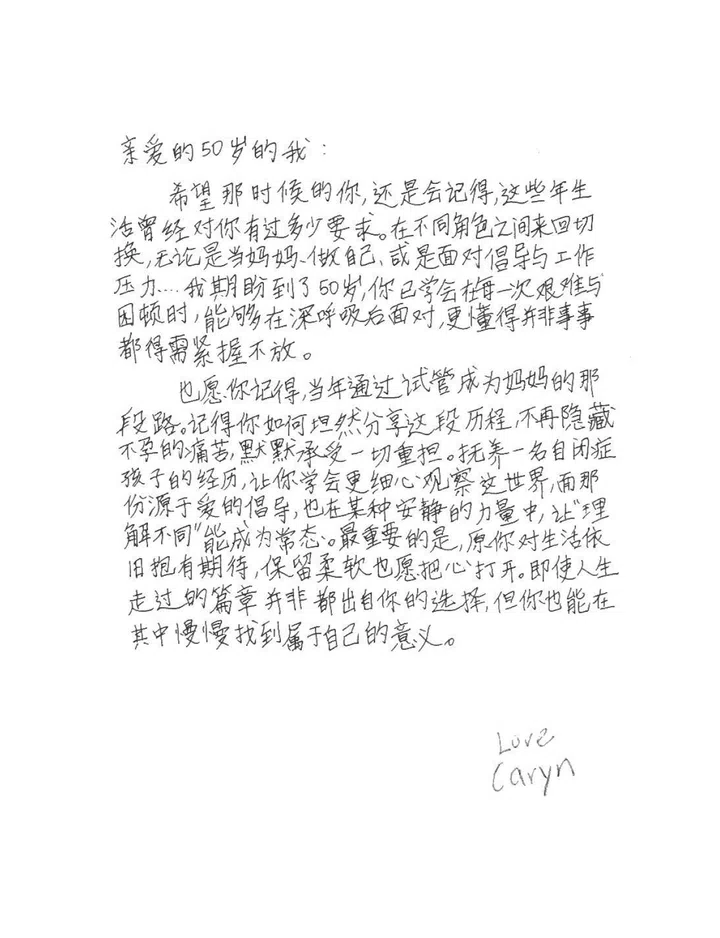 亲爱的50岁的我：
希望那时候的你，还是会记得，这些年生
活曾经对你有过多少要求。在不同角色之间来回切
换，无论是当妈妈、做自己、或是面对倡导与工作
压力....我期盼到了50岁，你已学会在每一次艰难与
困顿时，能够在深呼吸后面对，更懂得并非事事
都得需紧握不放。
也愿你记得，当年通过试管成为妈妈的那
段路。记得你如何坦然分享这段历程，不再隐藏
不孕的痛苦，默默承受一切重担。抚养一名自闭症
孩子的经历，让你学会更细心观察这世界，而那
份源于爱的倡导，也在某种安静的力量中，让“理
解不同”能成为常态。最重要的是，原你对生活依
旧抱有期待，保留柔软也愿把心打开。即使人生
走过的篇章并非都出自你的选择，但你也能在
其中慢慢找到属于自己的意义。
Love
Caryn